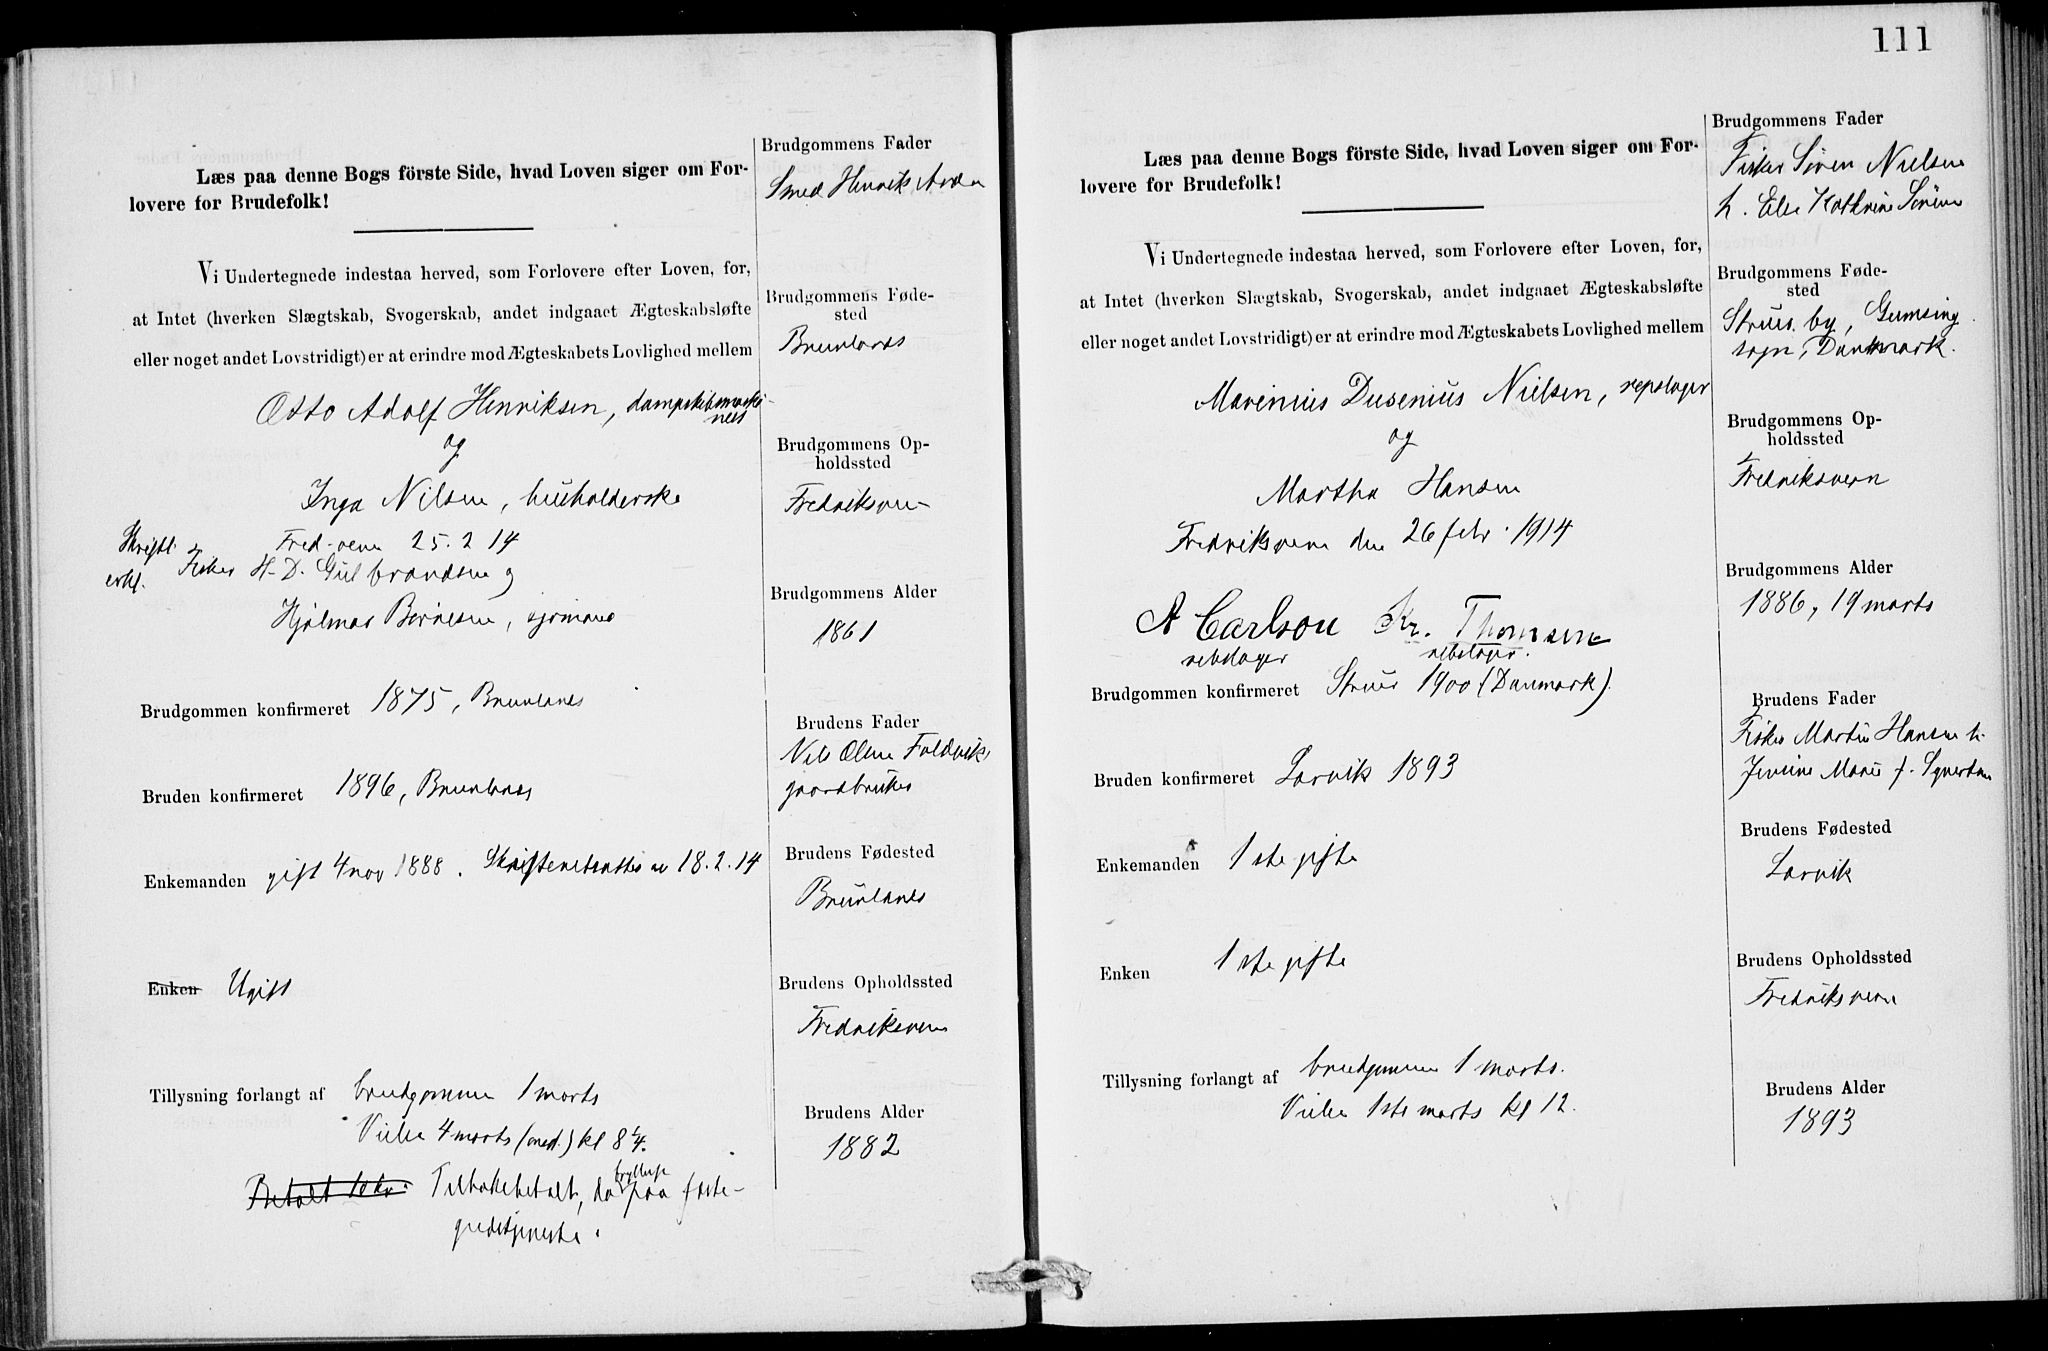 Læs paa denne Bogs förste Side, hvad Loven siger om For-
lovere for Brudefolk!
Vi Undertegnede indestaa herved, som Forlovere efter Loven, for,
at Intet (hverken Slægtskab, Svogerskab, andet indgaaet Ægteskabsløfte
eller noget andet Lovstridigt) er at erindre mod Ægteskabets Lovlighed mellem
Otto Adolf Henriksen, dampskibsmaski-
nist
og
Inga Nilsen, husholderske
Skriftl. Fred-vern 25.2 14
erkl. Fisker H. D. Gulbrandsen og
Hjalmar Berntsen, sjømand
Brudgommen konfirmeret 1875, Brunlanes
Bruden konfirmeret 1896, Brunlanes
Enkemanden gift 4 nov 1888. Skifteretsattest av 18.2.14
Enken Ugift
Tillysning forlangt af brudgommen 1 marts
Vielse 4 marts (onsd.) kl 8 1/4.
Betalt 10 kr. Tilbakebetalt, da bryllup paa faste-
gudstjeneste.
Brudgommens Fader
Smed Henrik
Brudgommens Føde-
sted
Brunlanes
Brudgommens Op-
holdssted
Fredriksvern
Brudgommens Alder
1861
Brudens Fader
Nils Olsen Foldvik
gaardbruker
Brudens Fødested
Brunlanes
Brudens Opholdssted
Fredriksvern
Brudens Alder
1882
111
Læs paa denne Bogs förste Side, hvad Loven siger om For-
lovere for Brudefolk!
Vi Undertegnede indestaa herved, som Forlovere efter Loven, for,
at Intet (hverken Slægtskab, Svogerskab, andet indgaaet Ægteskabsløfte
eller noget andet Lovstridigt) er at erindre mod Ægteskabets Lovlighed mellem
Marinius Dusenius Nielsen, repslager
og
Martha Hansen
Fredriksvern den 26 febr. 1914
A Carlson Kr. Thomsen
rebslager rebslager.
Brudgommen konfirmeret Struer 1900 (Danmark).
Bruden konfirmeret Larvik 1893
Enkemanden 1ste gifte
Enken 1ste gifte
Tillysning forlangt af brudgommen 1 marts.
Vielse 1ste marts kl 12.
Brudgommens Fader
Fisker Søren Nielsen
h. Else Kathrine
Brudgommens Føde-
sted
Struer by, Gumsing
sogn, Danmark.
Brudgommens Op-
holdssted
Fredriksvern
Brudgommens Alder
1886, 19 marts
Brudens Fader
Fisker Martin Hansen h.
Marie f.
Brudens Fødested
Larvik
Brudens Opholdssted
Fredriksvern
Brudens Alder
1893